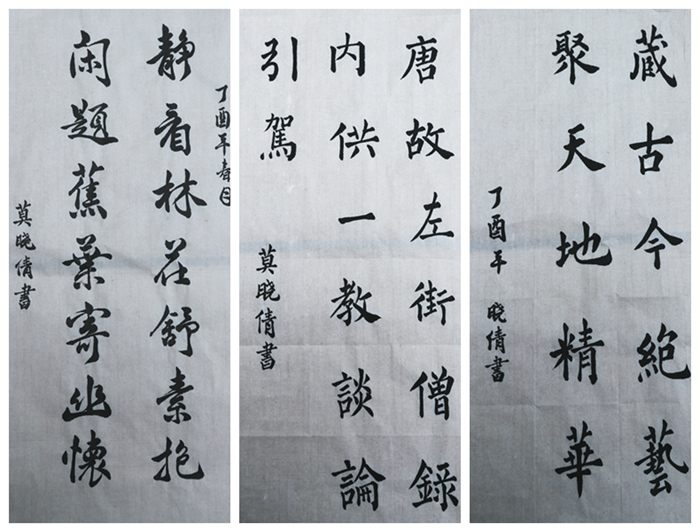 丁酉年春月
静看林花舒素抱
闲題蕉葉寄幽懷
莫晓倩書
唐故左街僧録
内供一教談論
引駕
莫晓倩書
藏古今絕藝
聚天地精華
丁酉年 晓倩書